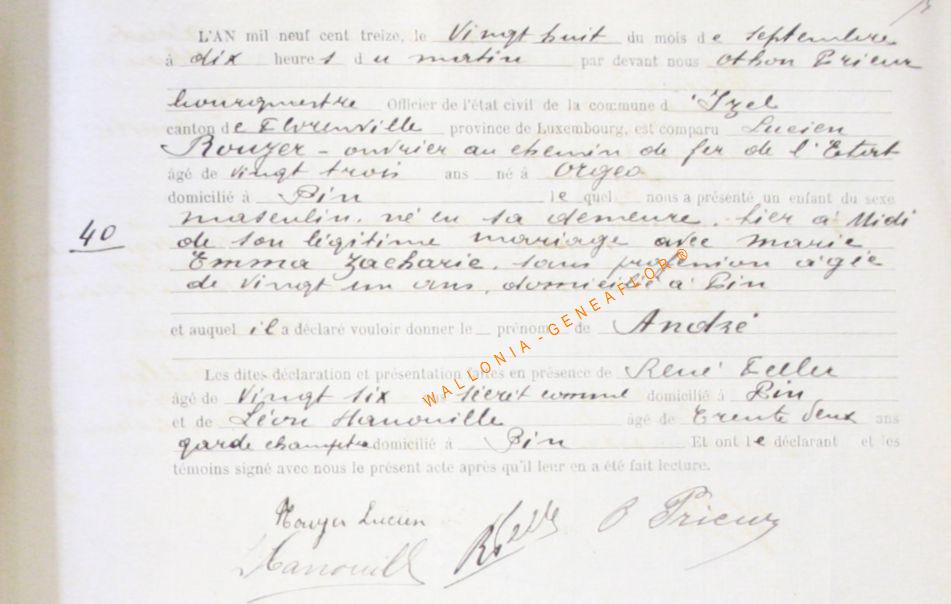 L'AN mil neuf cent treize, le Vingt huit du mois de septembre
à dix heures du matin par devant nous Othon Prieur
bourgmestre Officier de l'état civil de la commune d'Izel
canton de Florenville province de Luxembourg, est comparu Lucien
Rouyer - ouvrier au chemin de fer de l'Etat
âgé de vingt trois ans né à Orgeo
domicilié à Pin le quel nous a présenté un enfant du sexe
masculin, né en sa demeure, hier à Midi
40
de son légitime mariage avec Marie
Emma Zacharie, sans profession âgée
de vingt un ans, domicilié à Pin
et auquel il a déclaré vouloir donner le prénom de André
Les dites déclaration et présentation faites en présence de René Feller
âgé de Vingt six secrét comml domicilié à Pin
et de Léon Hanouille âgé de Trente deux ans
garde champtre domicilié à Pin Et ont le déclarant et les
témoins signé avec nous le présent acte après qu'il leur en a été fait lecture.
Rouyer Lucien
O Prieur
Hanouille
WALLONIA - GENEAFLOR®